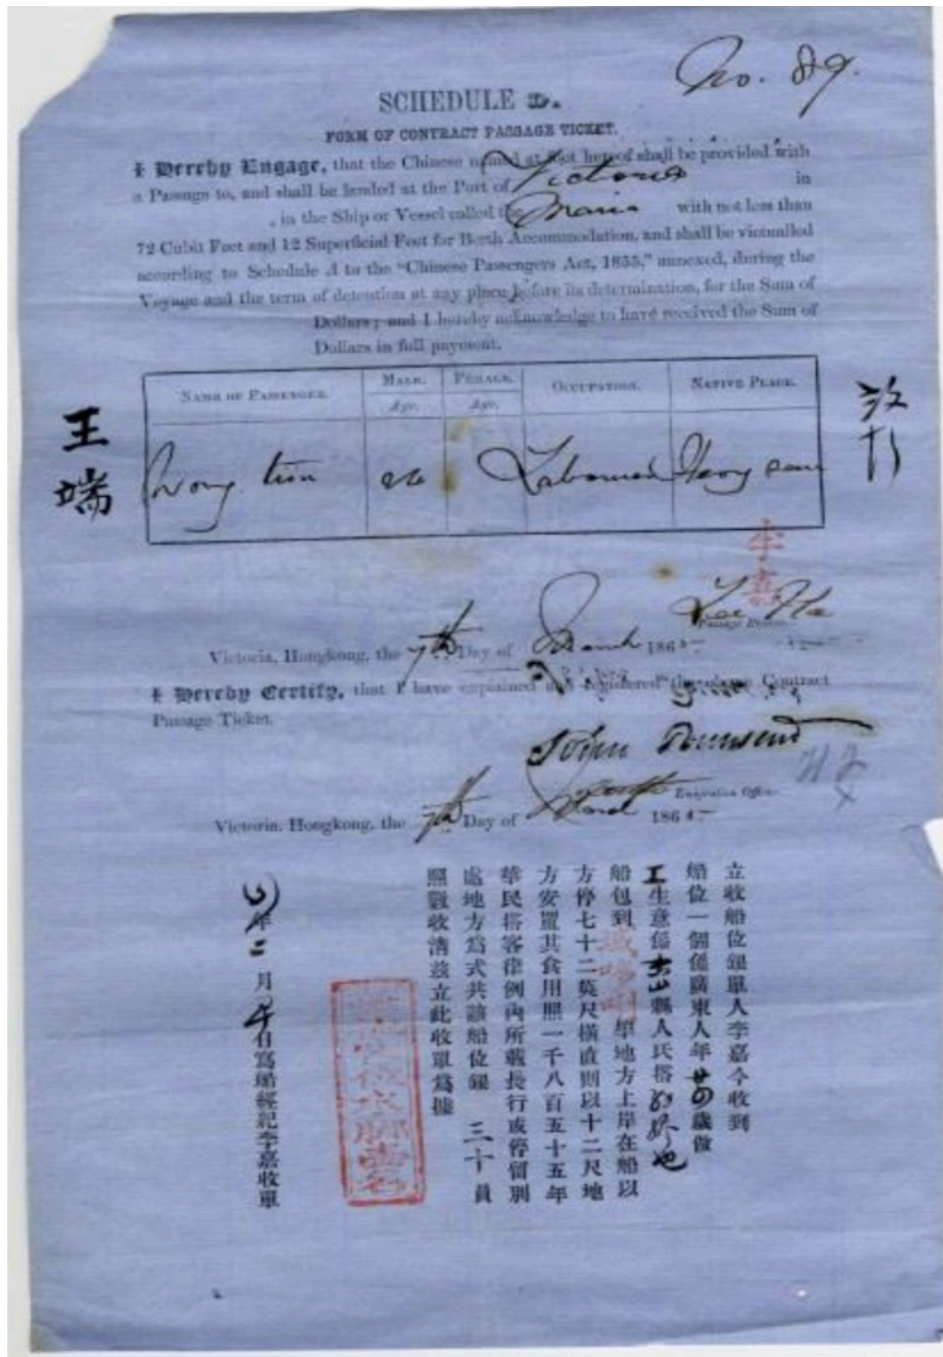 No. 89.
SCHEDULE D.
FORM OF CONTRACT PASSAGE TICKET.
I Hereby Engage, that the Chinese named at foot hereof shall be provided with
a Passage to, and shall be landed at the Port of Victoria in
, in the Ship or Vessel called the Maria with not less than
72 Cubit Feet and 12 Superficial Feet for Berth Accommodation, and shall be victualled
according to Schedule A to the "Chinese Passengers Act, 1855," annexed, during the
Voyage and the term of detention at any place before its determination, for the Sum of
Dollars; and I hereby acknowledge to have received the Sum of
Dollars in full payment.
NAME OF PASSENGER. MALE. FEMALE. OCCUPATION. NATIVE PLACE.
Age. Age.
王端
Wong Labourer Heong san
李嘉
Lee Ka
Passage Broker.
Victoria, Hongkong, the 7th Day of March 1865
I Hereby Certify, that I have explained and registered the above Contract
Passage Ticket.
John Townsend
Emigration Officer.
Victoria, Hongkong, the 7th Day of March 1865
立收船位銀單人李嘉今收到
船位一個係廣東人年廿四歲做
工生意係縣人氏搭
船包到域多唎埠地方上岸在船以
方停七十二英尺橫直則以十二尺地
方安置其食用照一千八百五十五年
華民搭客律例內所載長行或停留別
處地方為式共該船位銀 三十員
照數收清茲立此收單為據
年二月日寫船經紀李嘉收單